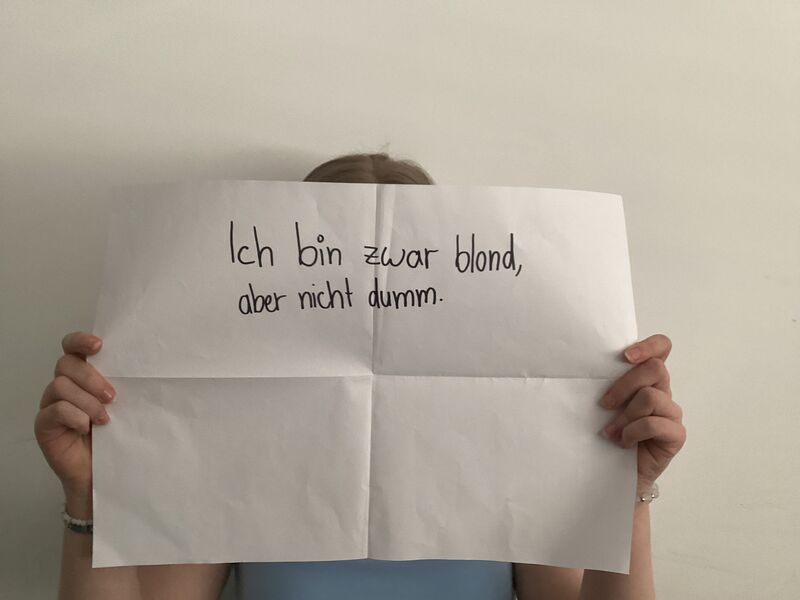 Ich bin zwar blond,
aber nicht dumm.